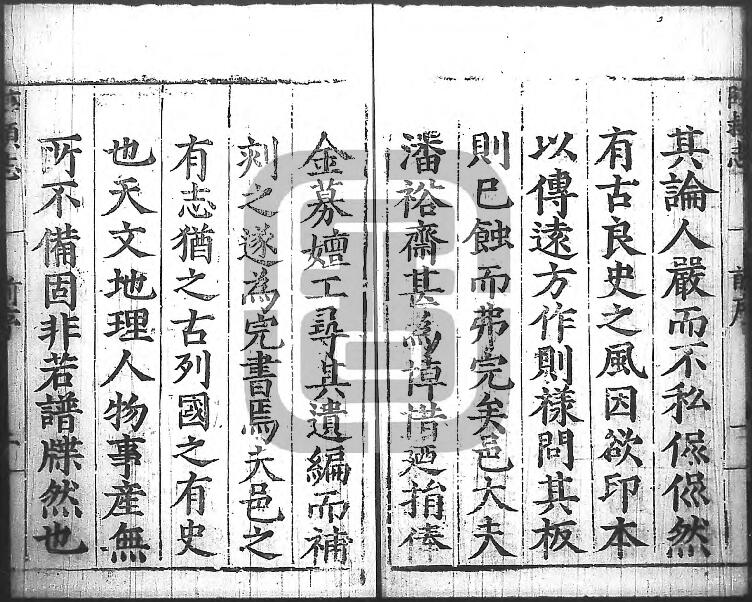 其論人嚴而不私侃侃然
有古良史之風因欲印本
以傳遠方作則樣問其板
則已蝕而弗完矣邑大夫
潘裕齋甚為悼惜廼捐俸
金募嬗工尋其遺編而補
刻之遂為完書焉夫邑之
有志猶之古列國之有史
也天文地理人物事產無
所不備固非若譜牒然也